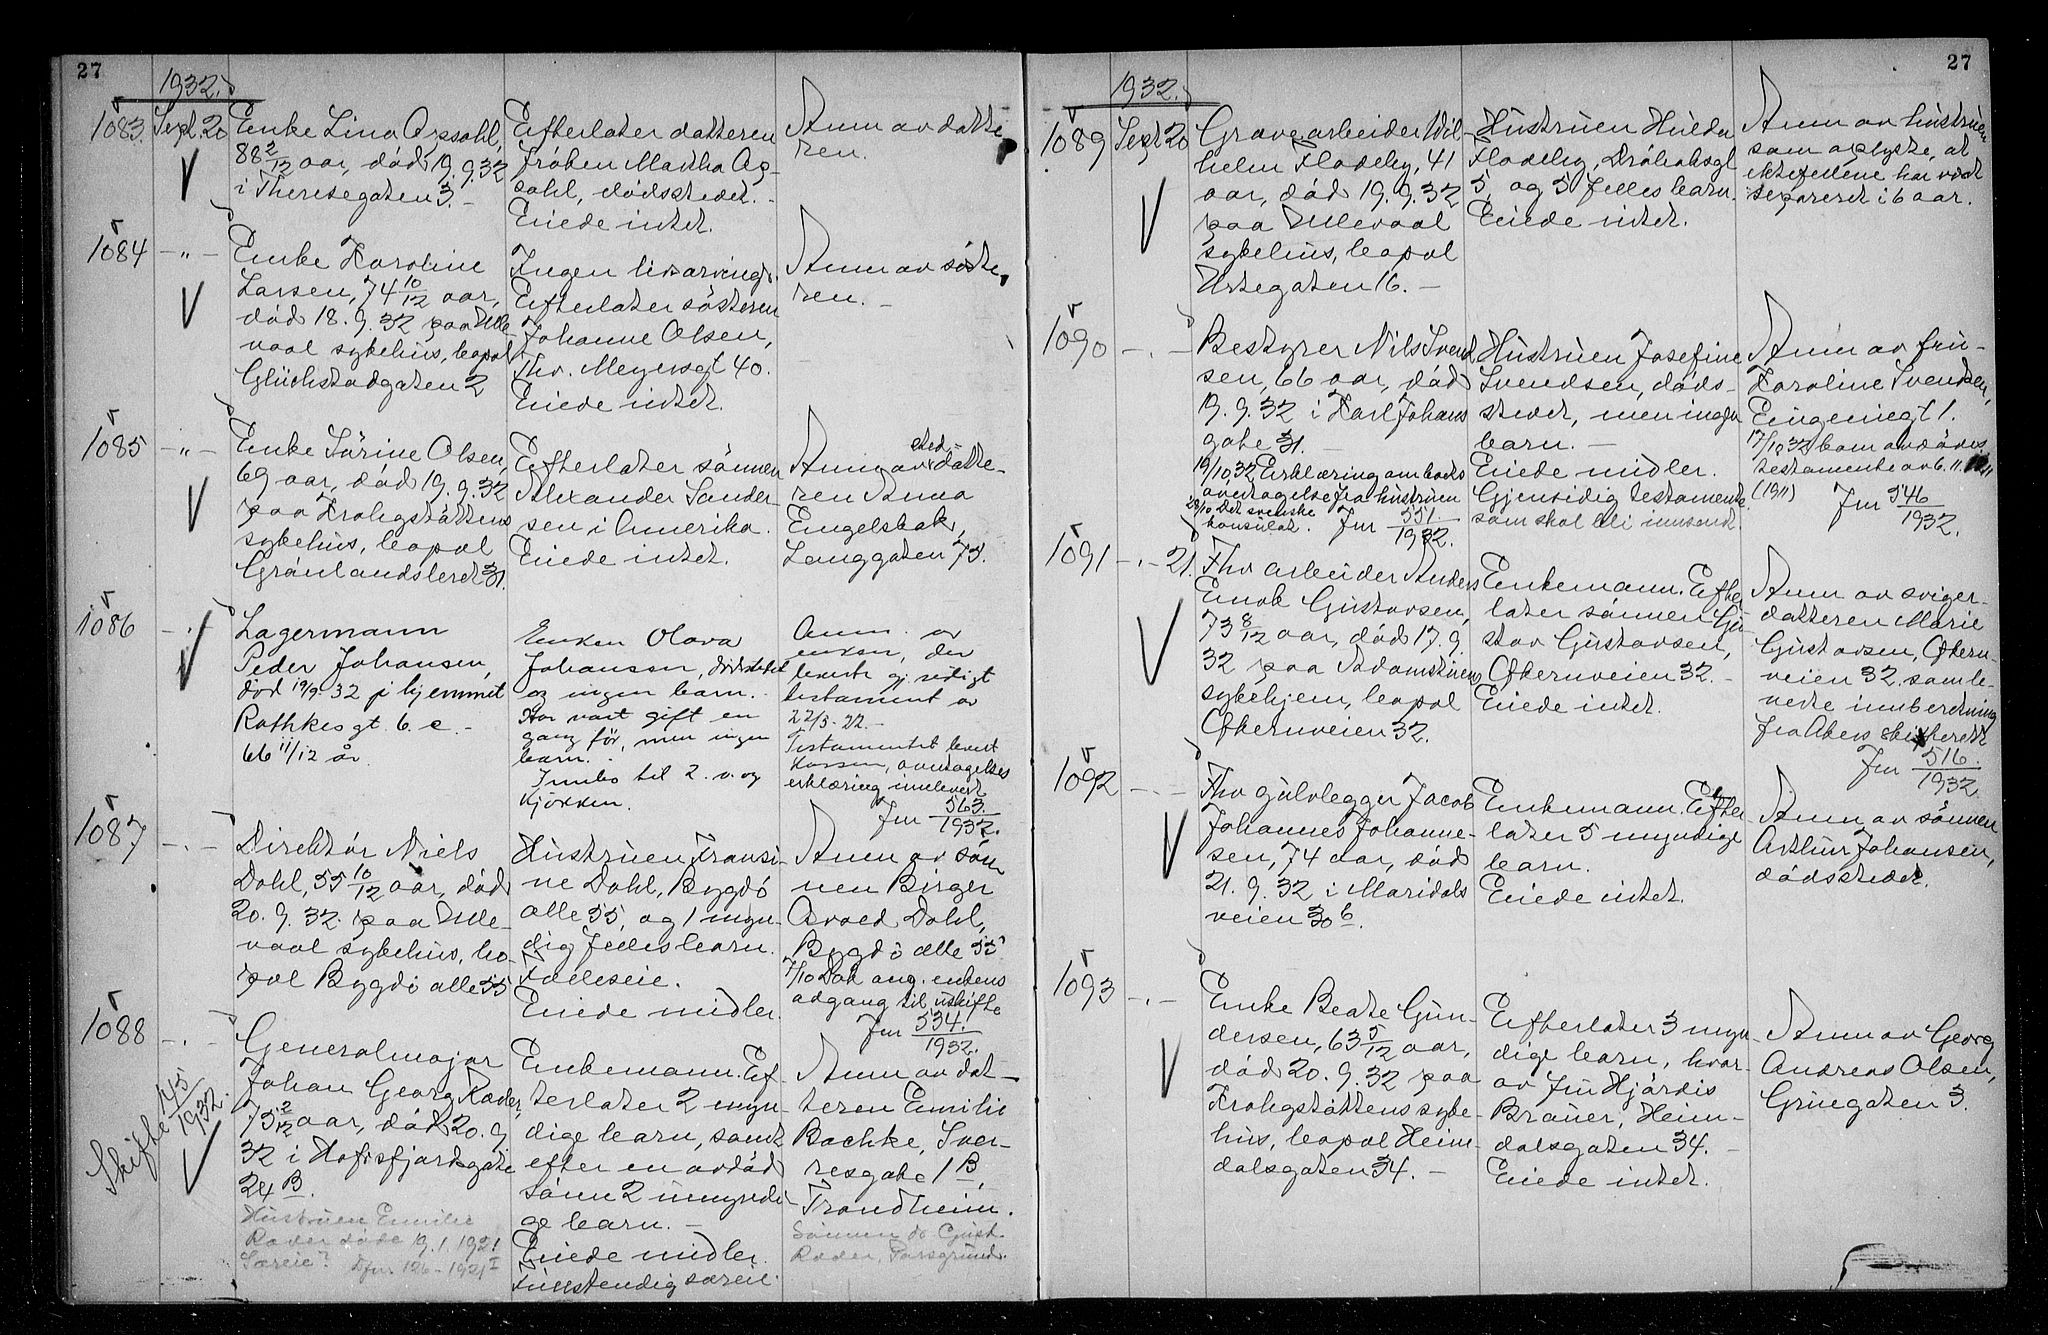 27
1932.
1083.
Sept. 20
Enke Lina Opsahl,
88 2/12 aar, död 19.9.32
i Theresegaten 3. -
Efterlater datteren
fröken Martha Op-
sahl, dödsstedet. -
Eiede intet.
Anm av datte
ren.
1084
- " -
Enke Karoline
Larsen, 74 10/12 aar,
död 18.9.32 paa Ulle
vaal sykehus, bopæl
Glückstadgaten 2
Ingen livsarving.
Efterlater sösteren
Johanne Olsen,
Thv. Meyersgt 40.
Eiede intet.
Anm av söste
ren. -
1085
- " -
Enke Sörine Olsen,
69 aar, död 19.9.32
paa Krohgstöttens
sykehus, bopæl
Grönlandsleret 31.
Efterlater sönnen
Alexander Sander
sen i Amerika.
Eiede intet.
sted-
Anm av datte-
ren Anna
Engelsbak,
Langgaten 73.
1086
Lagermann
Peder Johansen,
död 19/9. 32 i hjemmet
Rathkesgt. 6. c. -
66 11/12 år.
Enken Olava
Johansen, dödstedet
og ingen barn. -
Har vært gift en
gang för, men ingen
barn. -
Innbo til 2. v. og
kjökken.
Anm. av
enken, der
leverte gj.sidigt
testament av
22/3-22 -
Testamentet levert
Kassen, overtagelses
erklæring innlevert
Jnr 563./1932.
1087
- . -
Direktör Niels
Dahl, 55 10/12 aar, död
20.9.32. paa Ulle-
vaal sykehus, bo-
pæl Bygdö alle 55
Hustruen Fransi-
ne Dahl, Bygdö
alle 55, og 1 myn-
dig fellesbarn.
Fælleseie.
Eiede midler.
Anm av sön
nen Birger
Arved Dahl,
Bygdö alle 55
7/10 Dok ang. enkens
adgang til uskifte
Jnr 534./1932.
1088
- . -
Skifte 145/1932.
Generalmajor
Johan Georg Ræder,
75 2/12 aar, död 20.9
32 i Hafrsfjordsgate
24 B.
Hustruen Emilie
Ræder döde 19.1.1921
Særeie? Dfnr. 126-1921 I
Enkemann. Ef-
terlater 2 myn-
dige barn, samt
efter en avdöd
sönn 2 umyndi-
ge barn. -
Eiede midler.
Fullstendig særeie.
Anm av dat-
teren Emilie
Bachke, Sver-
resgate 1 B,
Trondheim.
Sönnen dr Gust.
Ræder, Porsgrund.
27
1932.
1089
Sept 20
Gravearbeider Wil-
helm Fladeby, 41
aar, död 19.9.32
paa Ullevaal
sykehus, bopæl
Urtegaten 16. -
Hustruen Hulda
Fladeby, Dröbaksgt
5, og 5 fellesbarn.
Eiede intet.
Anm av hustruen
som oplyste, at
ektefellene har vært
separeret i 6 aar.
1090
- . -
Bestyrer Nils Svend
sen, 66 aar, död
19.9.32 i Karl Johans
gate 31.
19/10.32 Erklæring om boets
overtagelse fra hustruen
20/10 Det svenske
konsulat. Jnr 551/1932.
Hustruen Josefine
Svendsen, döds-
stedet, men ingen
barn. -
Eiede midler.
Gjensidig testamente
som skal bli innsendt
Anm av fru -
Karoline Svendsen,
Eugeniegt 1.
17/10 32 kom avdödes
testamente av 6. 11.
(1911) Jnr 546/1932.
1091
- . - 21.
Fhv arbeider Anders
Enok Gustavsen,
73 8/12 aar, död 17.9.
32 paa Adamstuens
sykehjem, bopæl
Økernveien 32.
Enkemann. Efter
later sönnen Gu-
stav Gustavsen,
Økernveien 32. -
Eiede intet.
Anm av sviger-
datteren Marie
Gustavsen, Økern-
veien 32. som le-
verte innberetning
fra Akers skifterett
Jnr 516./1932
1092
- . -
Fhv gulvlegger Jacob
Johannes Johanne-
sen, 74 aar, död
21.9.32 i Maridals
veien 30 b.
Enkemann. Efter-
later 5 myndige
barn.
Eiede intet.
Anm av sönnen
Arthur Johansen,
dödsstedet.
1093
- . -
Enke Beate Gun-
dersen, 63 5/12 aar,
död 20.9.32 paa
Krohgstöttens syke-
hus, bopæl Heim-
dalsgaten 34. -
Efterlater 3 myn-
dige barn, hvor-
av fru Hjördis
Brauer, Heim-
dalsgaten 34. -
Eiede intet.
Anm av Georg
Andreas Olsen,
Grüegaten 3.